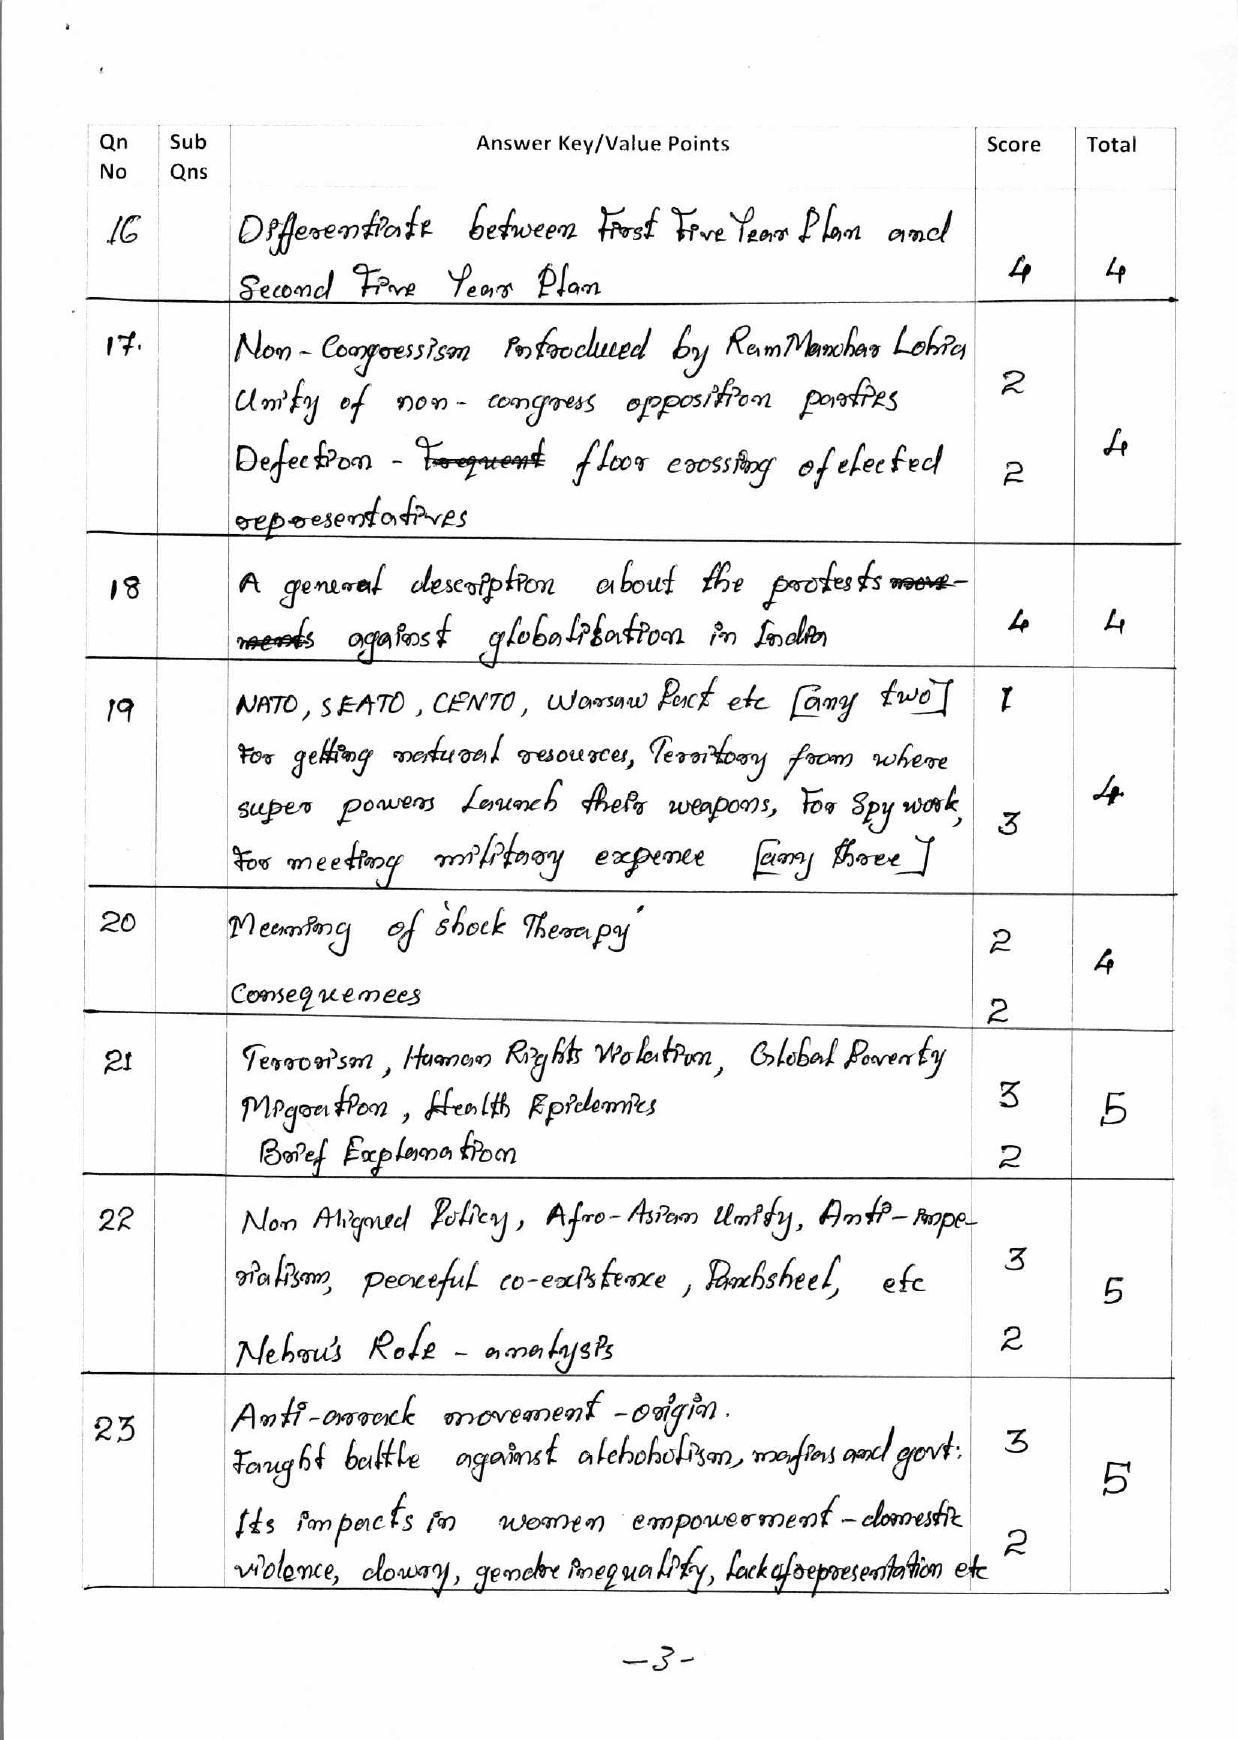 Qn No | Sub Qns | Answer Key/Value Points | Score | Total
16 | Differentiate between First Five Year Plan and
Second Five Year Plan | 4 | 4
17. | Non-Congressism introduced by Ram Manohar Lohia
Unity of non-congress opposition parties | 2
Defection - Frequent floor crossing of elected | 2 | 4
representatives
18 | A general description about the protests move-
ments against globalisation in India | 4 | 4
19 | NATO, SEATO, CENTO, Warsaw Pact etc [any two] | 1
For getting natural resources, Territory from where
super powers launch their weapons, For Spy work, | 3 | 4
For meeting military expence [any three]
20 | Meaning of 'shock Therapy' | 2 | 4
Consequences | 2
21 | Terrorism, Human Rights Violation, Global Poverty
Migration, Health Epidemics | 3 | 5
Brief Explanation | 2
22 | Non Aligned Policy, Afro-Asian Unity, Anti-impe-
rialism, peaceful co-existence, Panchsheel, etc | 3 | 5
Nehru's Role - analysis | 2
23 | Anti-arrack movement - origin.
Faught battle against alchoholism, mafias and govt: | 3 | 5
Its impacts in women empowerment - domestic
violence, dowry, gendre inequality, lack of representation etc | 2
-3-